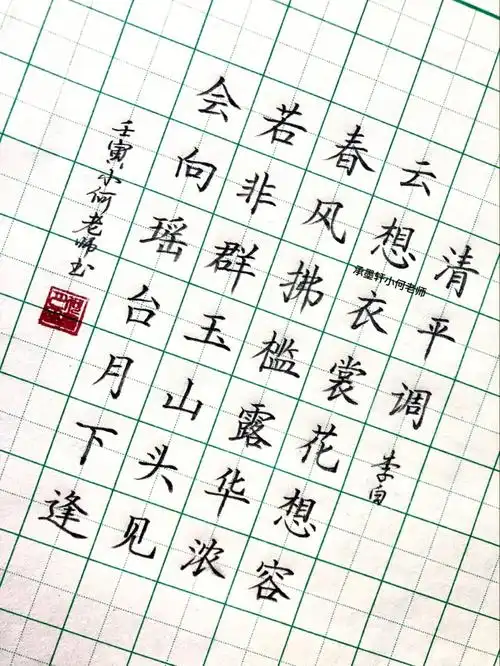 清平调 李白
云想衣裳花想容
春风拂槛露华浓
若非群玉山头见
会向瑶台月下逢
壬寅小何老师书
承墨轩小何老师